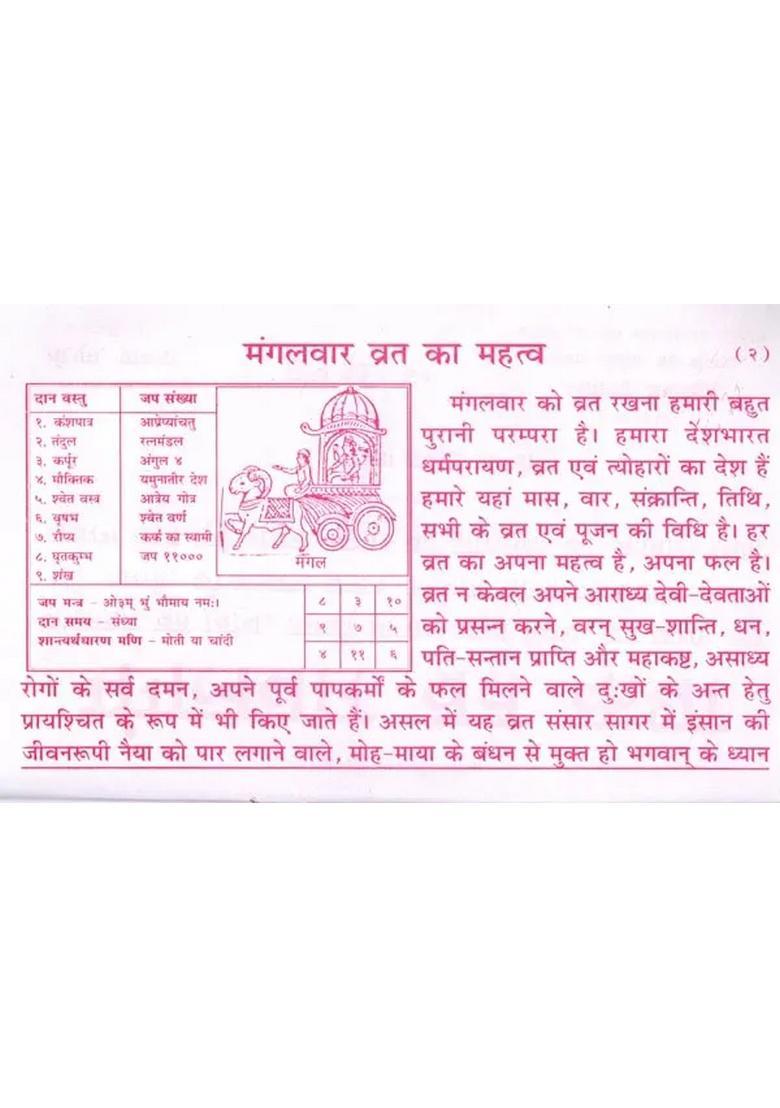 मंगलवार व्रत का महत्व
(२)
दान वस्तु जप संख्या
१. कंशपात्र आप्रेष्यांचतु
२. तंदुल रत्नमंडल
३. कर्पूर अंगुल ४
४. मौक्तिक यमुनातीर देश
५. श्वेत वस्त्र आत्रेय गोत्र
६. वृषभ श्वेत वर्ण
७. रौप्य कर्क का स्वामी
८. घृतकुम्भ जप ११०००
९. शंख
मंगल
जप मन्त्र - ओ३म् भुं भौमाय नमः।
दान समय - संध्या
शान्त्यर्थधारण मणि - मोती या चांदी
८ ३ १०
९ ७ ५
४ ११ ६
मंगलवार को व्रत रखना हमारी बहुत
पुरानी परम्परा है। हमारा देशभारत
धर्मपरायण, व्रत एवं त्योहारों का देश हैं
हमारे यहां मास, वार, संक्रान्ति, तिथि,
सभी के व्रत एवं पूजन की विधि है। हर
व्रत का अपना महत्व है, अपना फल है।
व्रत न केवल अपने आराध्य देवी-देवताओं
को प्रसन्न करने, वरन् सुख-शान्ति, धन,
पति-सन्तान प्राप्ति और महाकष्ट, असाध्य
रोगों के सर्व दमन, अपने पूर्व पापकर्मो के फल मिलने वाले दुःखों के अन्त हेतु
प्रायश्चित के रूप में भी किए जाते हैं। असल में यह व्रत संसार सागर में इंसान की
जीवनरूपी नैया को पार लगाने वाले, मोह-माया के बंधन से मुक्त हो भगवान् के ध्यान